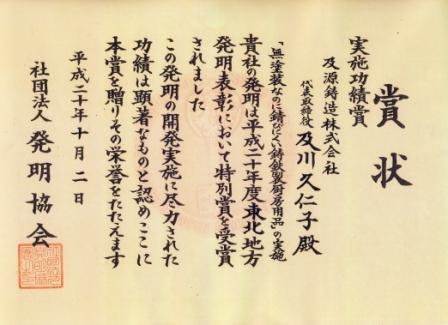 賞状
実施功績賞
及源鋳造株式会社
代表取締役 及川久仁子殿
「無塗装なのに錆びにくい鋳鉄製厨房用品」の実施
貴社の発明は平成二十年度東北地方
発明表彰において特別賞を受賞
されました
この発明の開発実施に尽力された
功績は顕著なものと認めここに
本賞を贈りその栄誉をたたえます
平成二十年十月二日
社団法人 発明協会